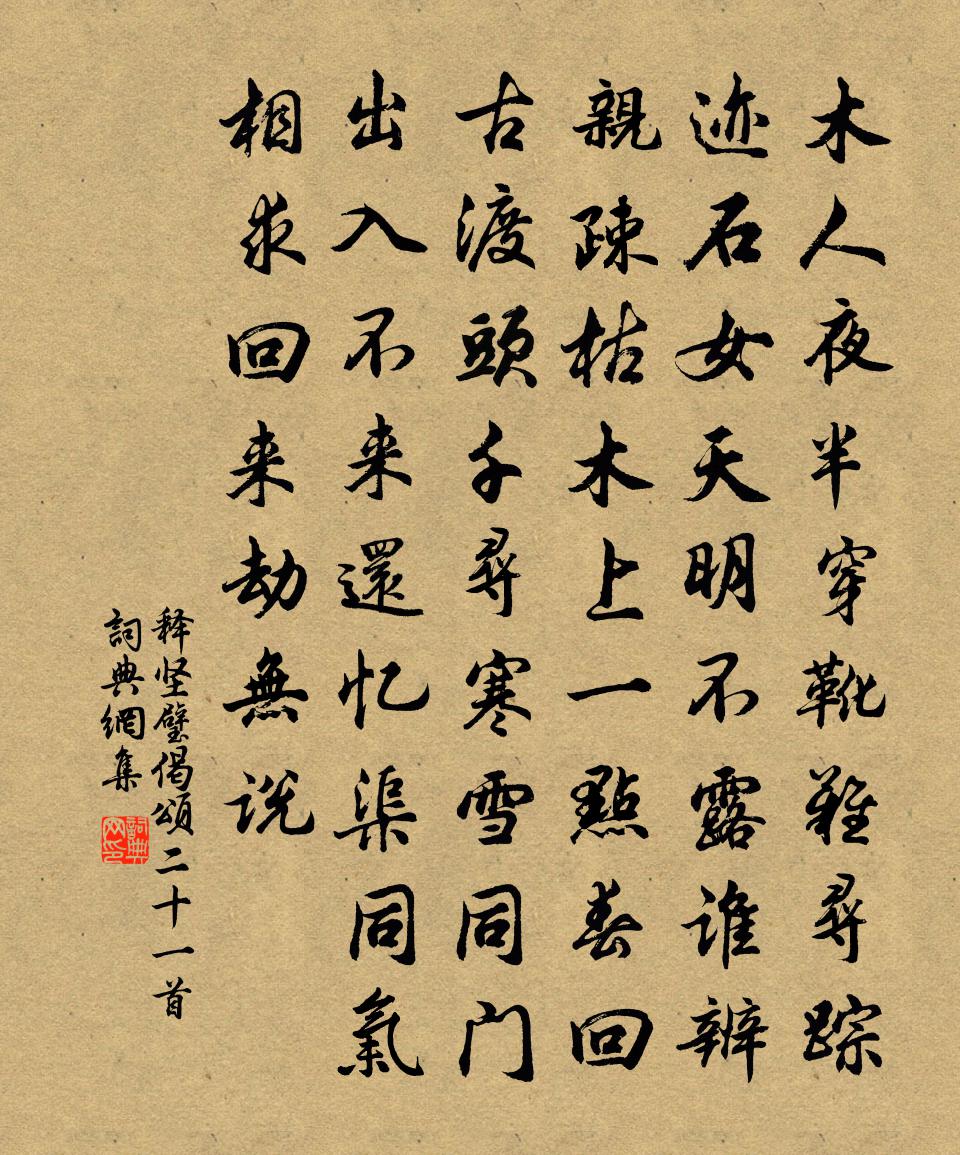 木人夜半穿靴難尋踪
迹石女天明不露谁辨
親疎枯木上一點春回
古渡頭千尋寒雪同门
出入不来還忆渠同氣
相求回来劫無说
释坚璧偈頌二十一首
詞典網集
詞典网印